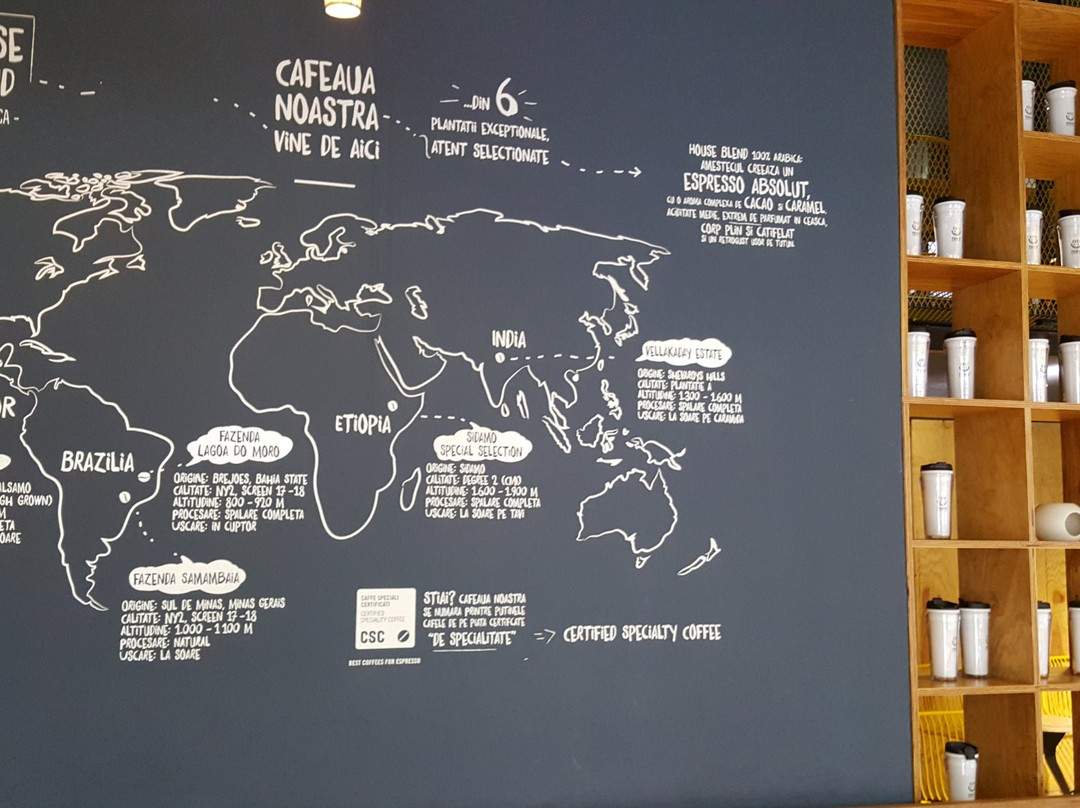 SE
D
CA-
CAFEAUA
NOASTRA
VINE DE AICI
...DIN 6
PLANTATII EXCEPTIONALE,
ATENT SELECTIONATE
HOUSE BLEND 100% ARABICA:
AMESTECUL CREEAZA UN
ESPRESSO ABSOLUT,
CU O AROMA COMPLEXA DE CACAO SI CARAMEL,
ACIDITATE MEDIE, EXTREM DE PARFUMAT IN CEASCA,
CORP PLIN SI CATIFELAT
SI UN RETROGUST USOR DE TUTUN.
INDIA
VELLAKADAY ESTATE
ORIGINE: SHEVAROYS HILLS
CALITATE: PLANTATIE A
ALTITUDINE: 1.300 - 1.600 M
PROCESARE: SPALARE COMPLETA
USCARE: LA SOARE PE CARAMIDA
OR
ETIOPIA
SIDAMO
SPECIAL SELECTION
ORIGINE: SIDAMO
CALITATE: DEGREE 2 (CM)
ALTITUDINE: 1.600 - 1.900 M
PROCESARE: SPALARE COMPLETA
USCARE: LA SOARE PE TAVI
BRAZILIA
FAZENDA
LAGOA DO MORO
ORIGINE: BREJOES, BAHIA STATE
CALITATE: NY2, SCREEN 17 -18
ALTITUDINE: 800 - 920 M
PROCESARE: SPALARE COMPLETA
USCARE: IN CUPTOR
ALSAMO
GH GROWN)
M
ETA
OARE
FAZENDA SAMAMBAIA
ORIGINE: SUL DE MINAS, MINAS GERAIS
CALITATE: NY2, SCREEN 17 -18
ALTITUDINE: 1.000 - 1 100 M
PROCESARE: NATURAL
USCARE: LA SOARE
CAFFE SPECIALI
CERTIFICATI
CERTIFIED
SPECIALITY COFFEE
CSC
BEST COFFEES FOR ESPRESSO
STIAI? CAFEAUA NOASTRA
SE NUMARA PRINTRE PUTINELE
CAFELE DE PE PIATA CERTIFICATE
"DE SPECIALITATE"
=> CERTIFIED SPECIALTY COFFEE